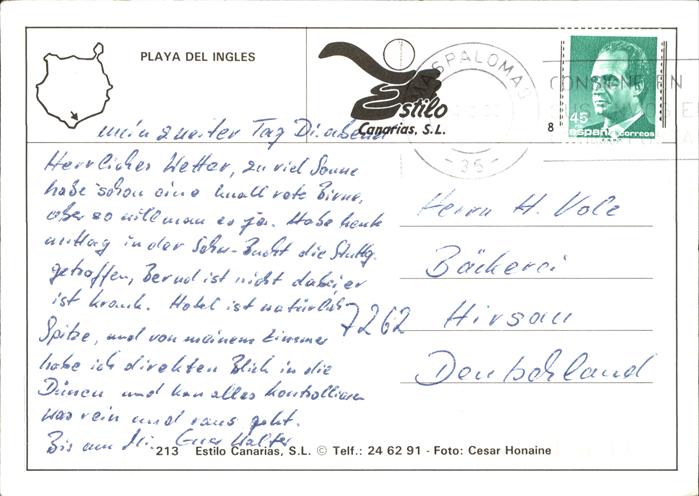 PLAYA DEL INGLES
Estilo
Canarias, S.L.
MASPALOMAS
- 35 -
CONSIGNE EN
8
45
españa correos
mein zweiter Tag Di. abend
Herrliches Wetter, zu viel Sonne
habe schon eine knall rote Birne,
aber so will man es ja. Habe heute
mittag in der Schw-Bucht die Stuttg.
getroffen, Bernd ist nicht dabei, er
ist krank. Hotel ist natürlich
Spitze, und von meinem Zimmer
habe ich direkten Blick in die
Dünen und kan alles kontrollieren
was rein und raus geht.
Bis am Mi. Euer Walter
Herrn H. Volz
Bäckerei
7262 Hirsau
Deutschland
213 Estilo Canarias, S.L. © Telf.: 24 62 91 - Foto: Cesar Honaine